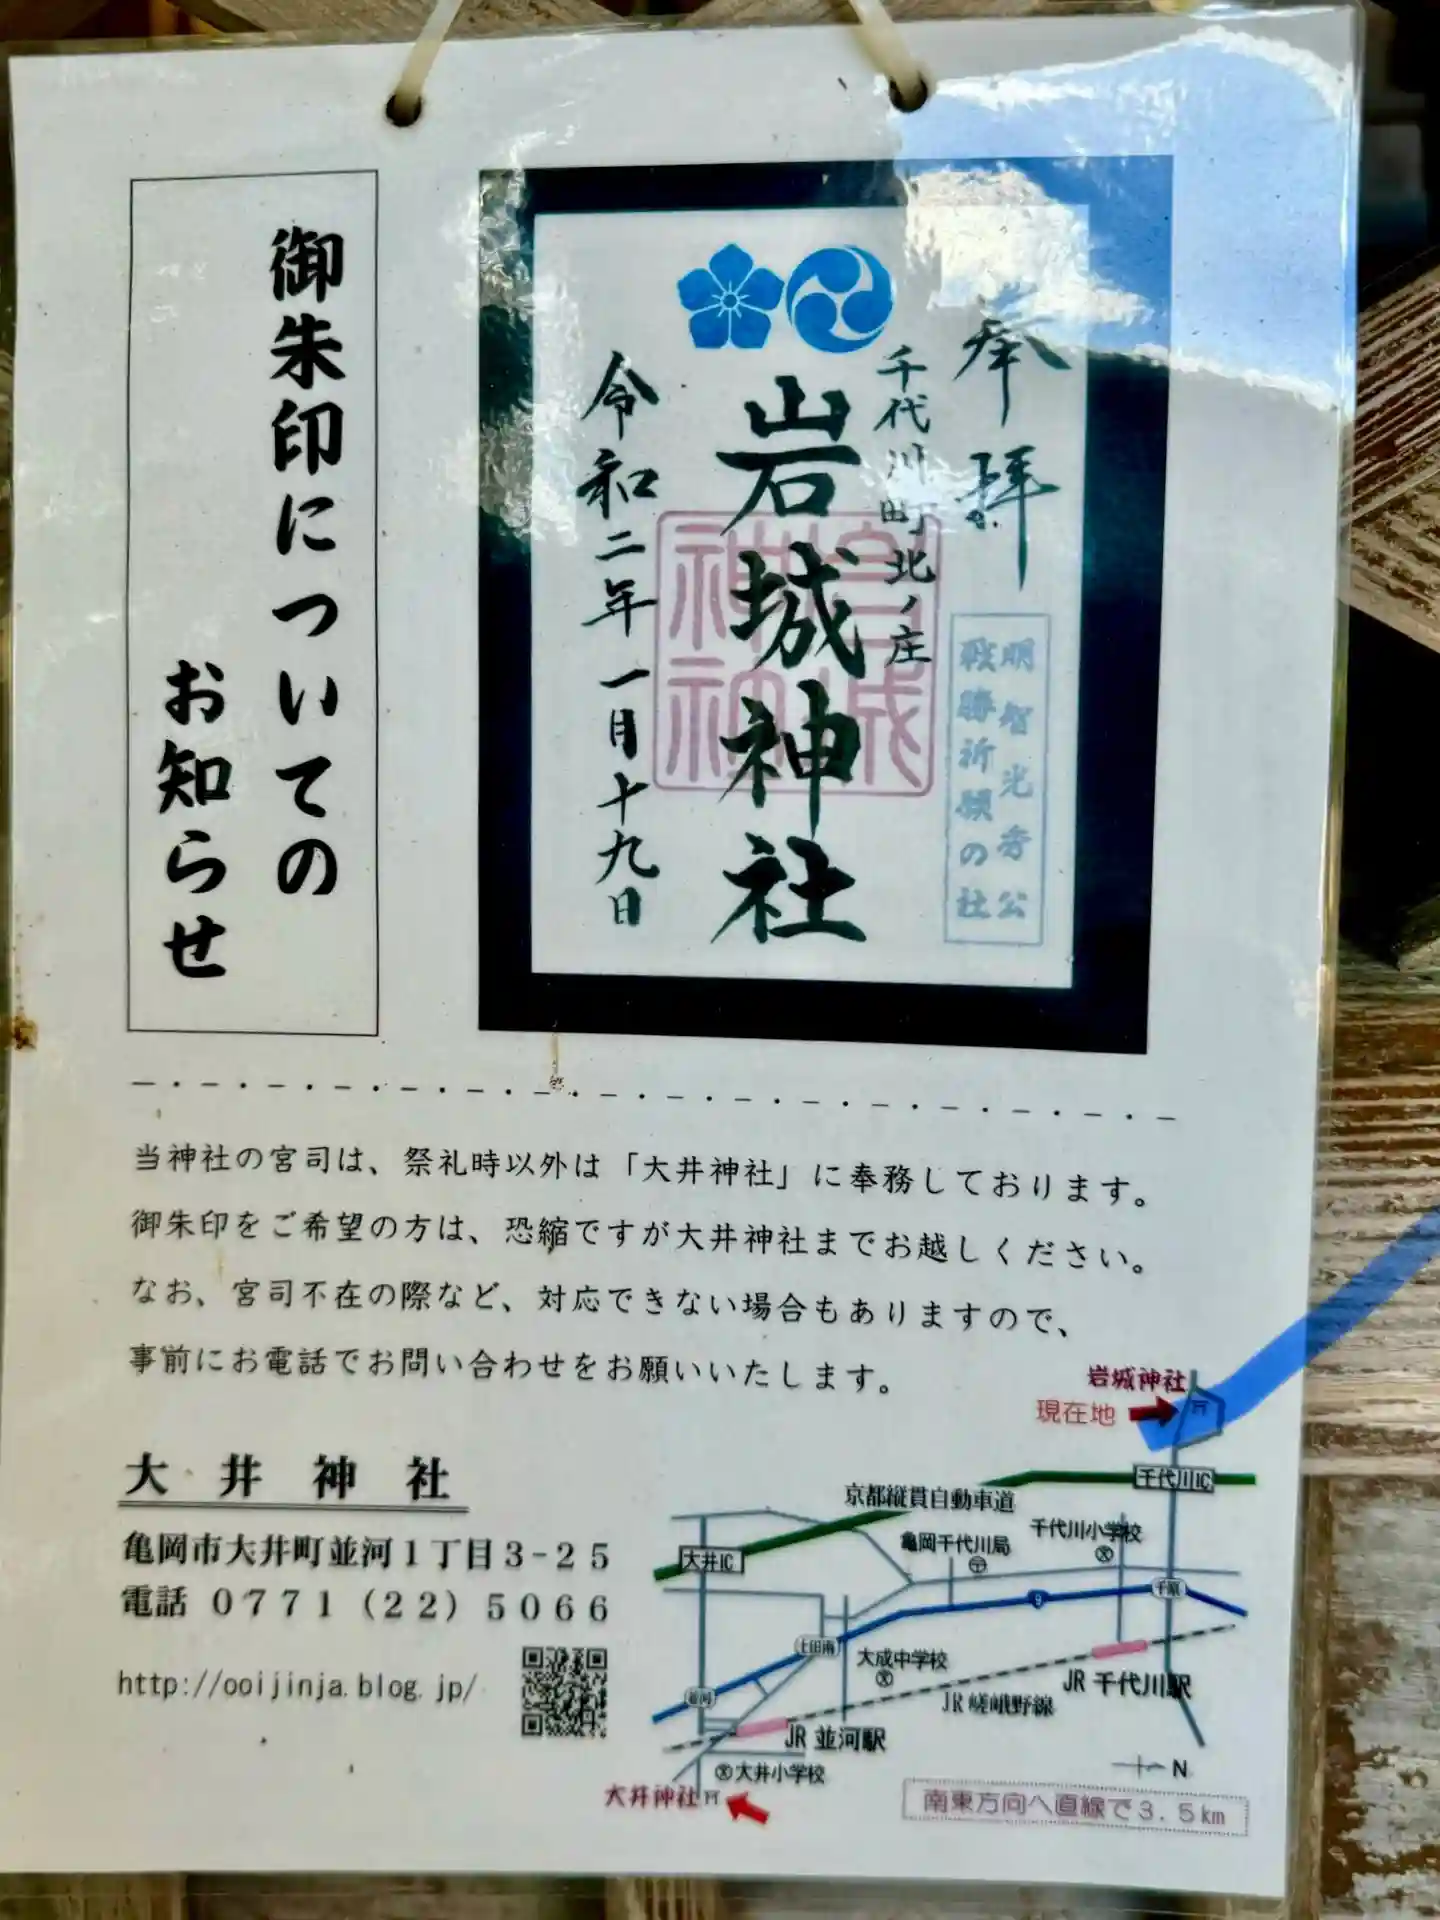 御朱印についての
お知らせ
奉拝
明智光秀公
戦勝祈願の社
千代川町北ノ庄
岩城神社
岩城
神社
令和二年一月十九日
当神社の宮司は、祭礼時以外は「大井神社」に奉務しております。
御朱印をご希望の方は、恐縮ですが大井神社までお越しください。
なお、宮司不在の際など、対応できない場合もありますので、
事前にお電話でお問い合わせをお願いいたします。
大井神社
亀岡市大井町並河1丁目3-25
電話 0771(22)5066
http://ooijinja.blog.jp/
岩城神社
現在地
千代川IC
京都縦貫自動車道
千代川小学校
亀岡千代川局
大井IC
千原
9
土田南
大成中学校
並河
JR 千代川駅
JR 嵯峨野線
JR 並河駅
大井小学校
N
大井神社
南東方向へ直線で3.5km